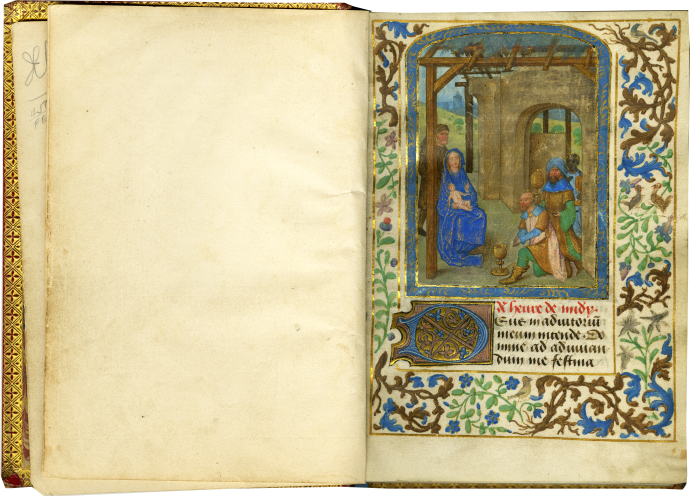 A heure de midy.
Deus in adiutoriū
meum intende. Do
mine ad adiuuan
dum me festina